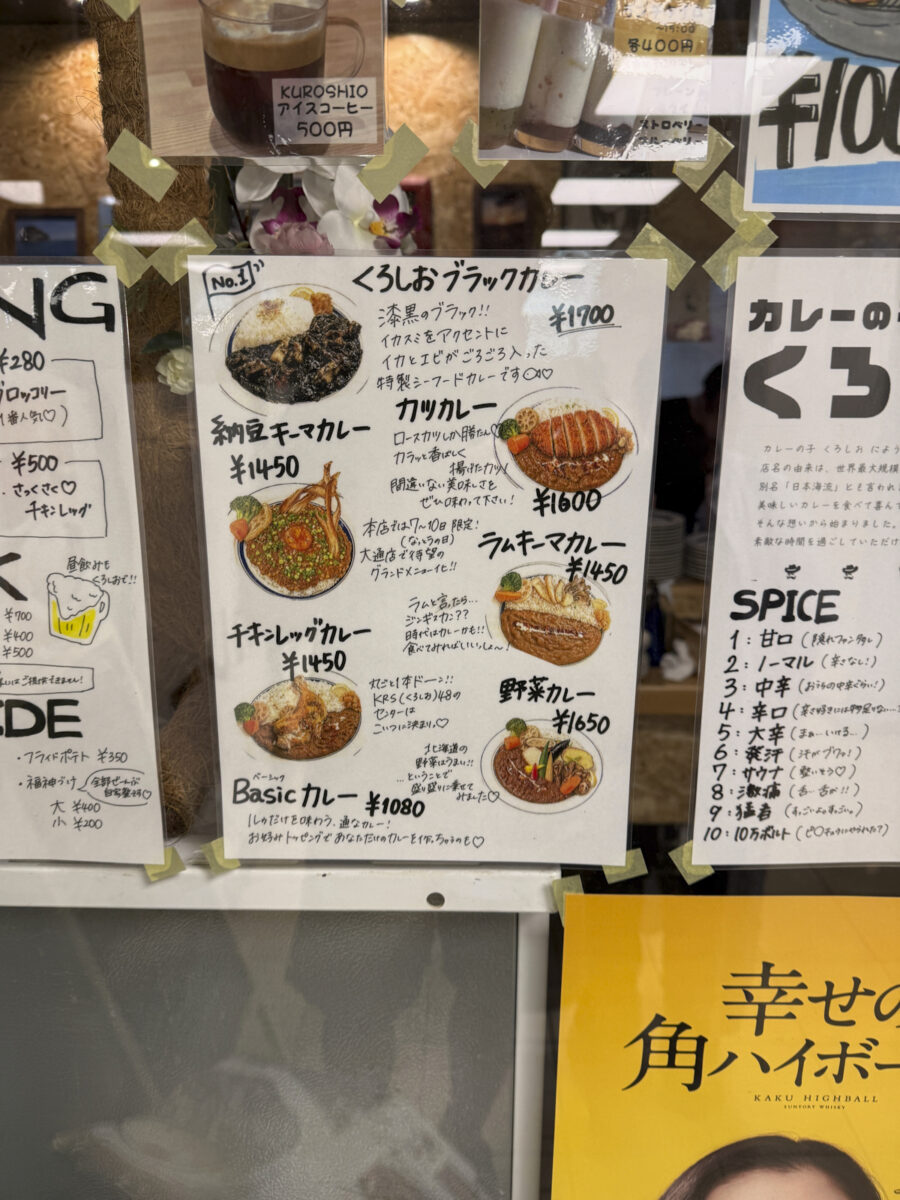 KUROSHIO
アイスコーヒー
500円
~19:00
各400円
ストロベリー
¥100
NG
¥280
ブロッコリー
¥500
さっくさく♡
チキンレッグ
K
昼飲みも
くろしおで!!
¥700
¥400
¥500
IDE
・フライドポテト ¥350
・福神づけ
大 ¥400
小 ¥200
No.1
くろしおブラックカレー
¥1700
漆黒のブラック!!
イカスミをアクセントに
イカとエビがごろごろ入った
特製シーフードカレーです♡
納豆キーマカレー
¥1450
本店では7〜10日限定!
(なっとうの日)
大通店で待望の
グランドメニュー化!!
カツカレー
ロースカツしか勝たん♡
カラッと香ばしく
揚げたカツ!
間違いない美味しさを
ぜひ味わって下さい!
¥1600
ラムキーマカレー
¥1450
ラムと言ったら…
ジンギスカン??
時代はカレーかも!!
食べてみればいいっしょ〜!
チキンレッグカレー
¥1450
丸ごと1本ドーン!!
KRS(くろしお)48の
センターは
こいつに決まり♡
野菜カレー
¥1650
北海道の
野菜はうまい!!
…ということで
盛り盛りに乗せて
みました♡
ベーシック
Basicカレー ¥1080
ルゥだけを味わう、通なカレー!
お好みトッピングであなただけのカレーを作っちゃうのも♡
カレーの
くろ
カレーの子 くろしお によう
店名の由来は、世界最大規模
別名「日本海流」とも言われ
美味しいカレーを食べて喜んで
そんな想いから始まりました。
素敵な時間を過ごしていただけ
SPICE
1:甘口(隠れファン多し)
2:ノーマル(辛さなし!)
3:中辛(おうちの中辛ぐらい!)
4:辛口(辛さ好きには物足りない…?
5:大辛(まぁ…いける…)
6:発汗(汗がブワァ!)
7:サウナ(整いそう♡)
8:激痛(舌…舌が!!)
9:猛者(すっごいよぉすっごい。)
10:10万ボルト(ピ〇チュウにやられた?)
幸せの
角ハイボー
KAKU HIGHBALL
SUNTORY WHISKY